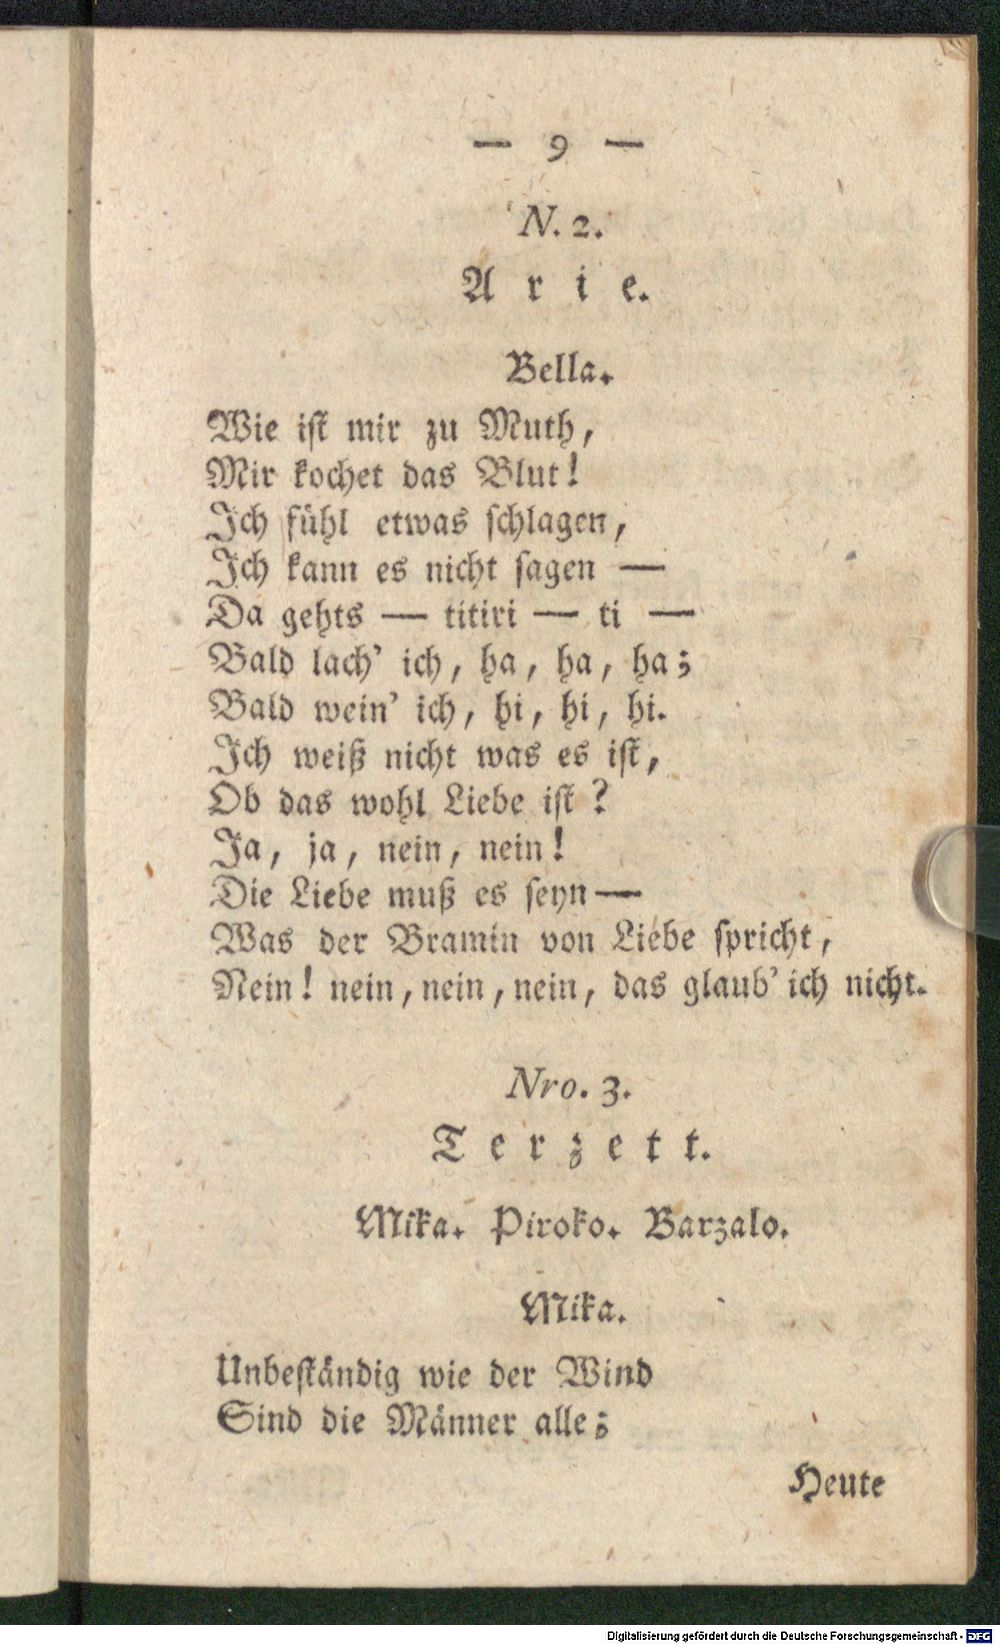 — 9 —
N. 2.
Arie.
Bella.
Wie ist mir zu Muth,
Mir kochet das Blut!
Ich fühl etwas schlagen,
Ich kann es nicht sagen —
Da gehts — titiri — ti —
Bald lach' ich, ha, ha, ha;
Bald wein' ich, hi, hi, hi.
Ich weiß nicht was es ist,
Ob das wohl Liebe ist?
Ja, ja, nein, nein!
Die Liebe muß es seyn —
Was der Bramin von Liebe spricht,
Nein! nein, nein, nein, das glaub' ich nicht.
Nro. 3.
Terzett.
Mika. Piroko. Barzalo.
Mika.
Unbeständig wie der Wind
Sind die Männer alle;
Heute
Digitalisierung gefördert durch die Deutsche Forschungsgemeinschaft - DFG